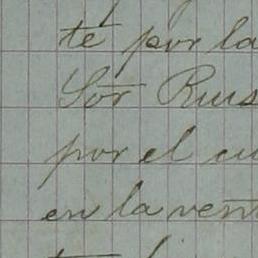 te por la
Sor Ruis
por el cu
en la vent